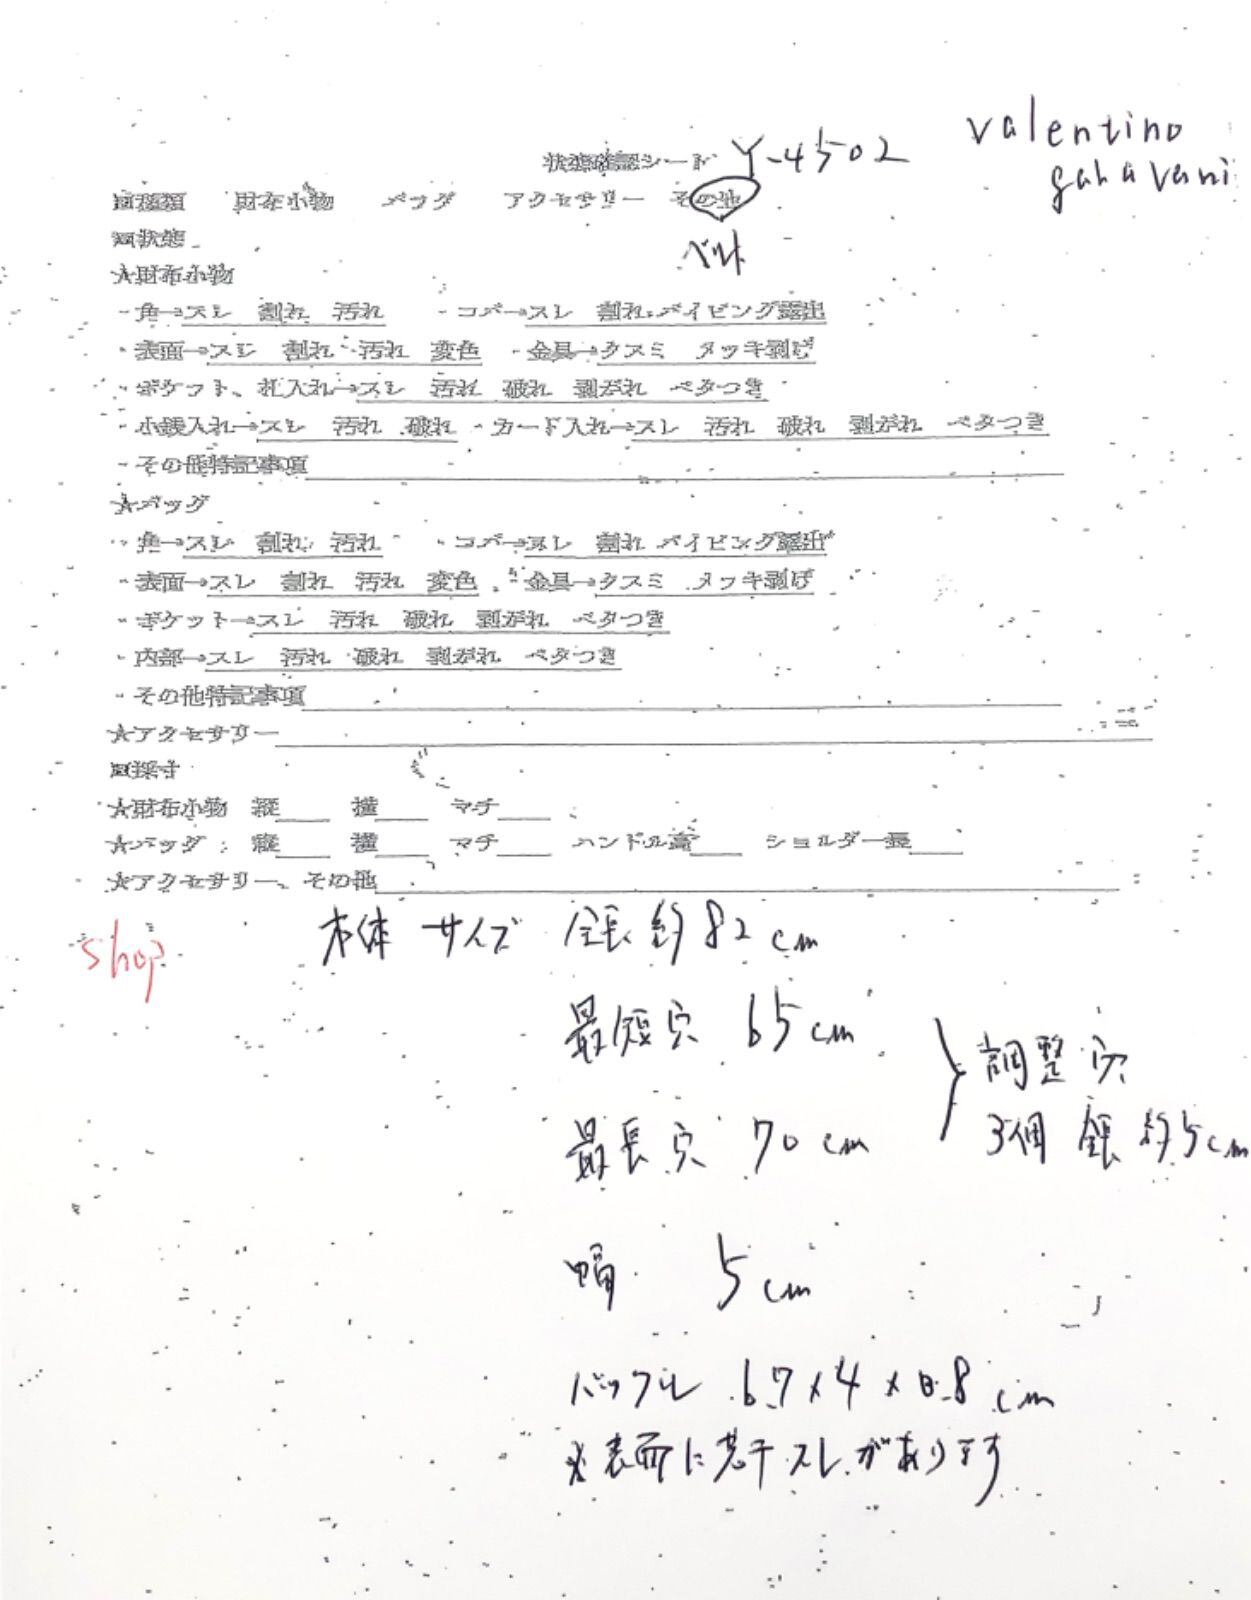 valentino
garavani
状態確認シート Y-4502
□種類 財布小物 バッグ アクセサリー その他
ベルト
□状態
★財布小物
・角→スレ 割れ 汚れ ・コバ→スレ 割れ パイピング露出
・表面→スレ 割れ 汚れ 変色 ・金具→クスミ メッキ剥げ
・ポケット、札入れ→スレ 汚れ 破れ 剥がれ ベタつき
・小銭入れ→スレ 汚れ 破れ ・カード入れ→スレ 汚れ 破れ 剥がれ ベタつき
・その他特記事項
★バッグ
・角→スレ 割れ 汚れ ・コバ→スレ 割れ パイピング露出
・表面→スレ 割れ 汚れ 変色 ・金具→クスミ メッキ剥げ
・ポケット→スレ 汚れ 破れ 剥がれ ベタつき
・内部→スレ 汚れ 破れ 剥がれ ベタつき
・その他特記事項
★アクセサリー
□採寸
★財布小物 縦 横 マチ
★バッグ:縦 横 マチ ハンドル高 ショルダー長
★アクセサリー、その他
shop
本体サイズ 全長約82cm
最短穴 65cm
最長穴 70cm
調整穴
3個 全長約5cm
幅 5cm
バックル 6.7×4×0.8cm
※表面に若干スレがあります